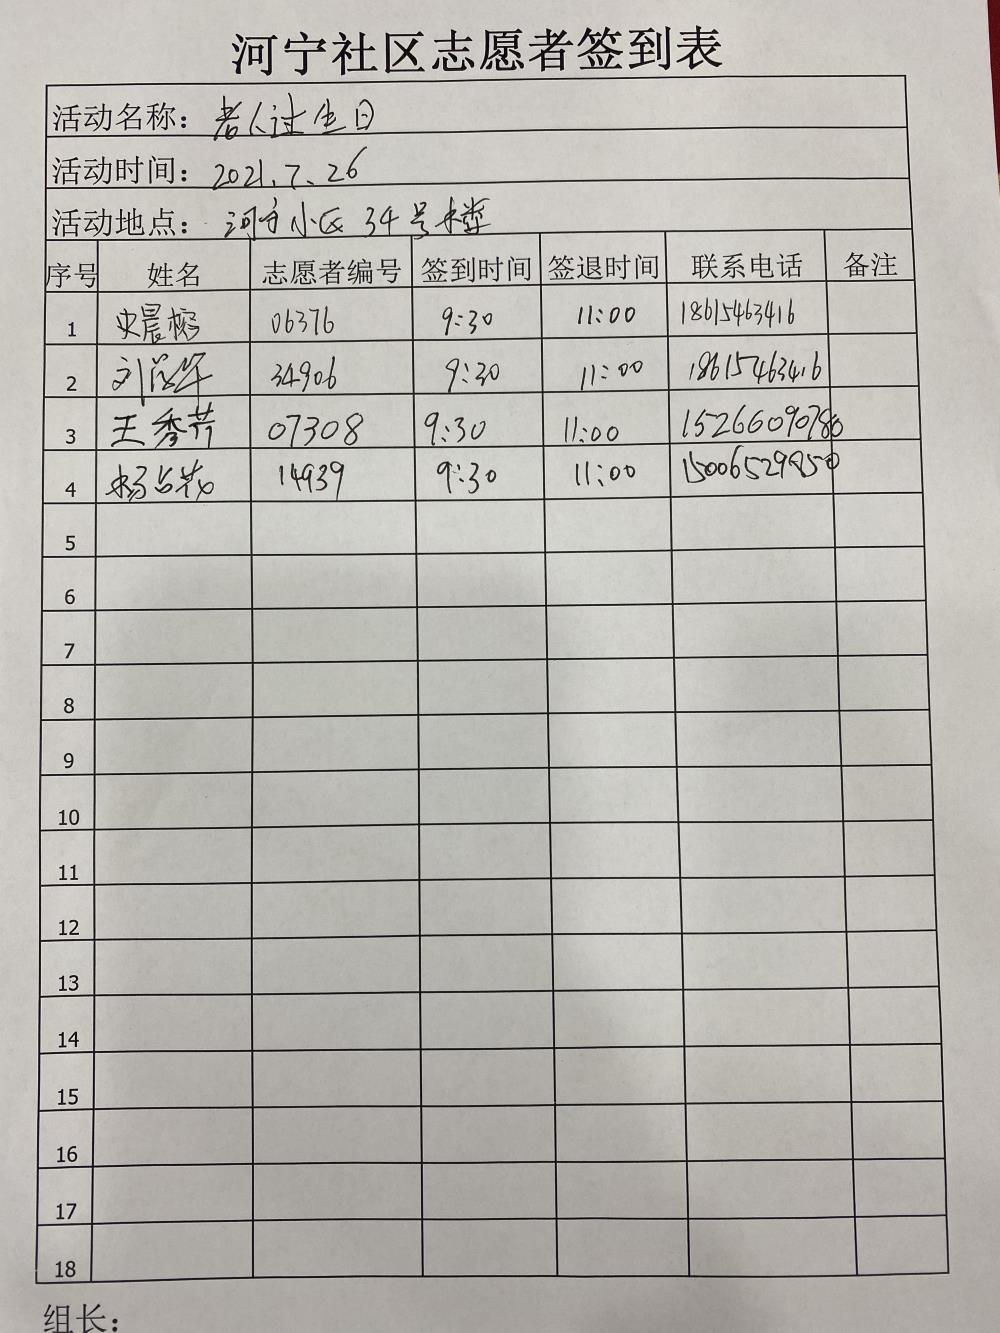 河宁社区志愿者签到表
活动名称：老人过生日
活动时间：2021.7.26
活动地点：河宁小区34号楼
序号 姓名 志愿者编号 签到时间 签退时间 联系电话 备注
1 史晨榕 06376 9:30 11:00 18615463416
2 刘 34906 9:30 11:00 18615463416
3 王秀芹 07308 9:30 11:00 15266090780
4 杨占花 14939 9:30 11:00
5
6
7
8
9
10
11
12
13
14
15
16
17
18
组长：